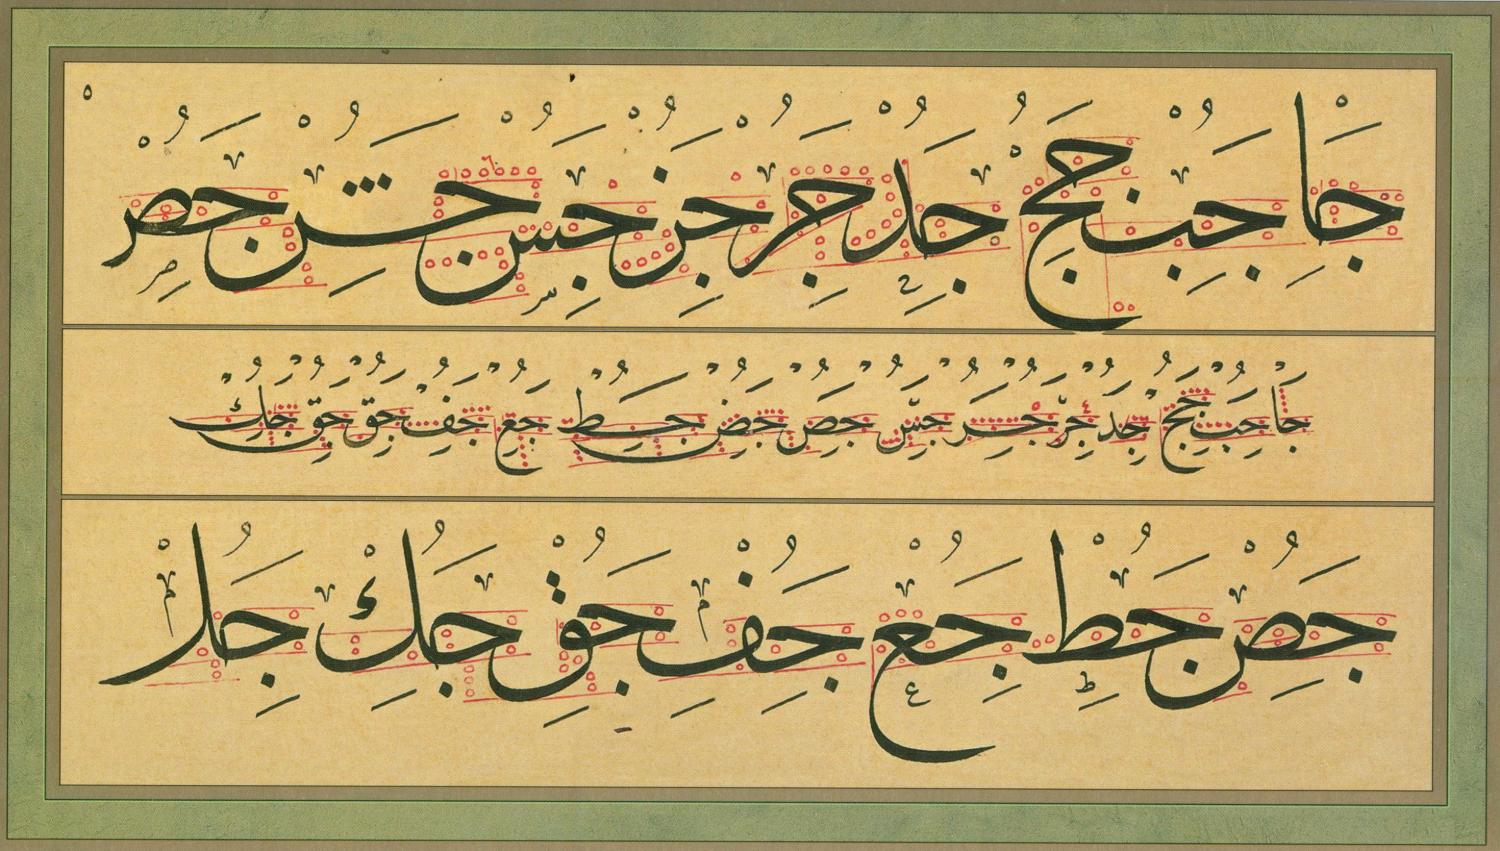 ٥
جا جب جج جد جر جز جس جش جص
جا جب جج جد جر جر جس جص جص جط جع جف جق جق جك
جص جط جع جف جق جك جل